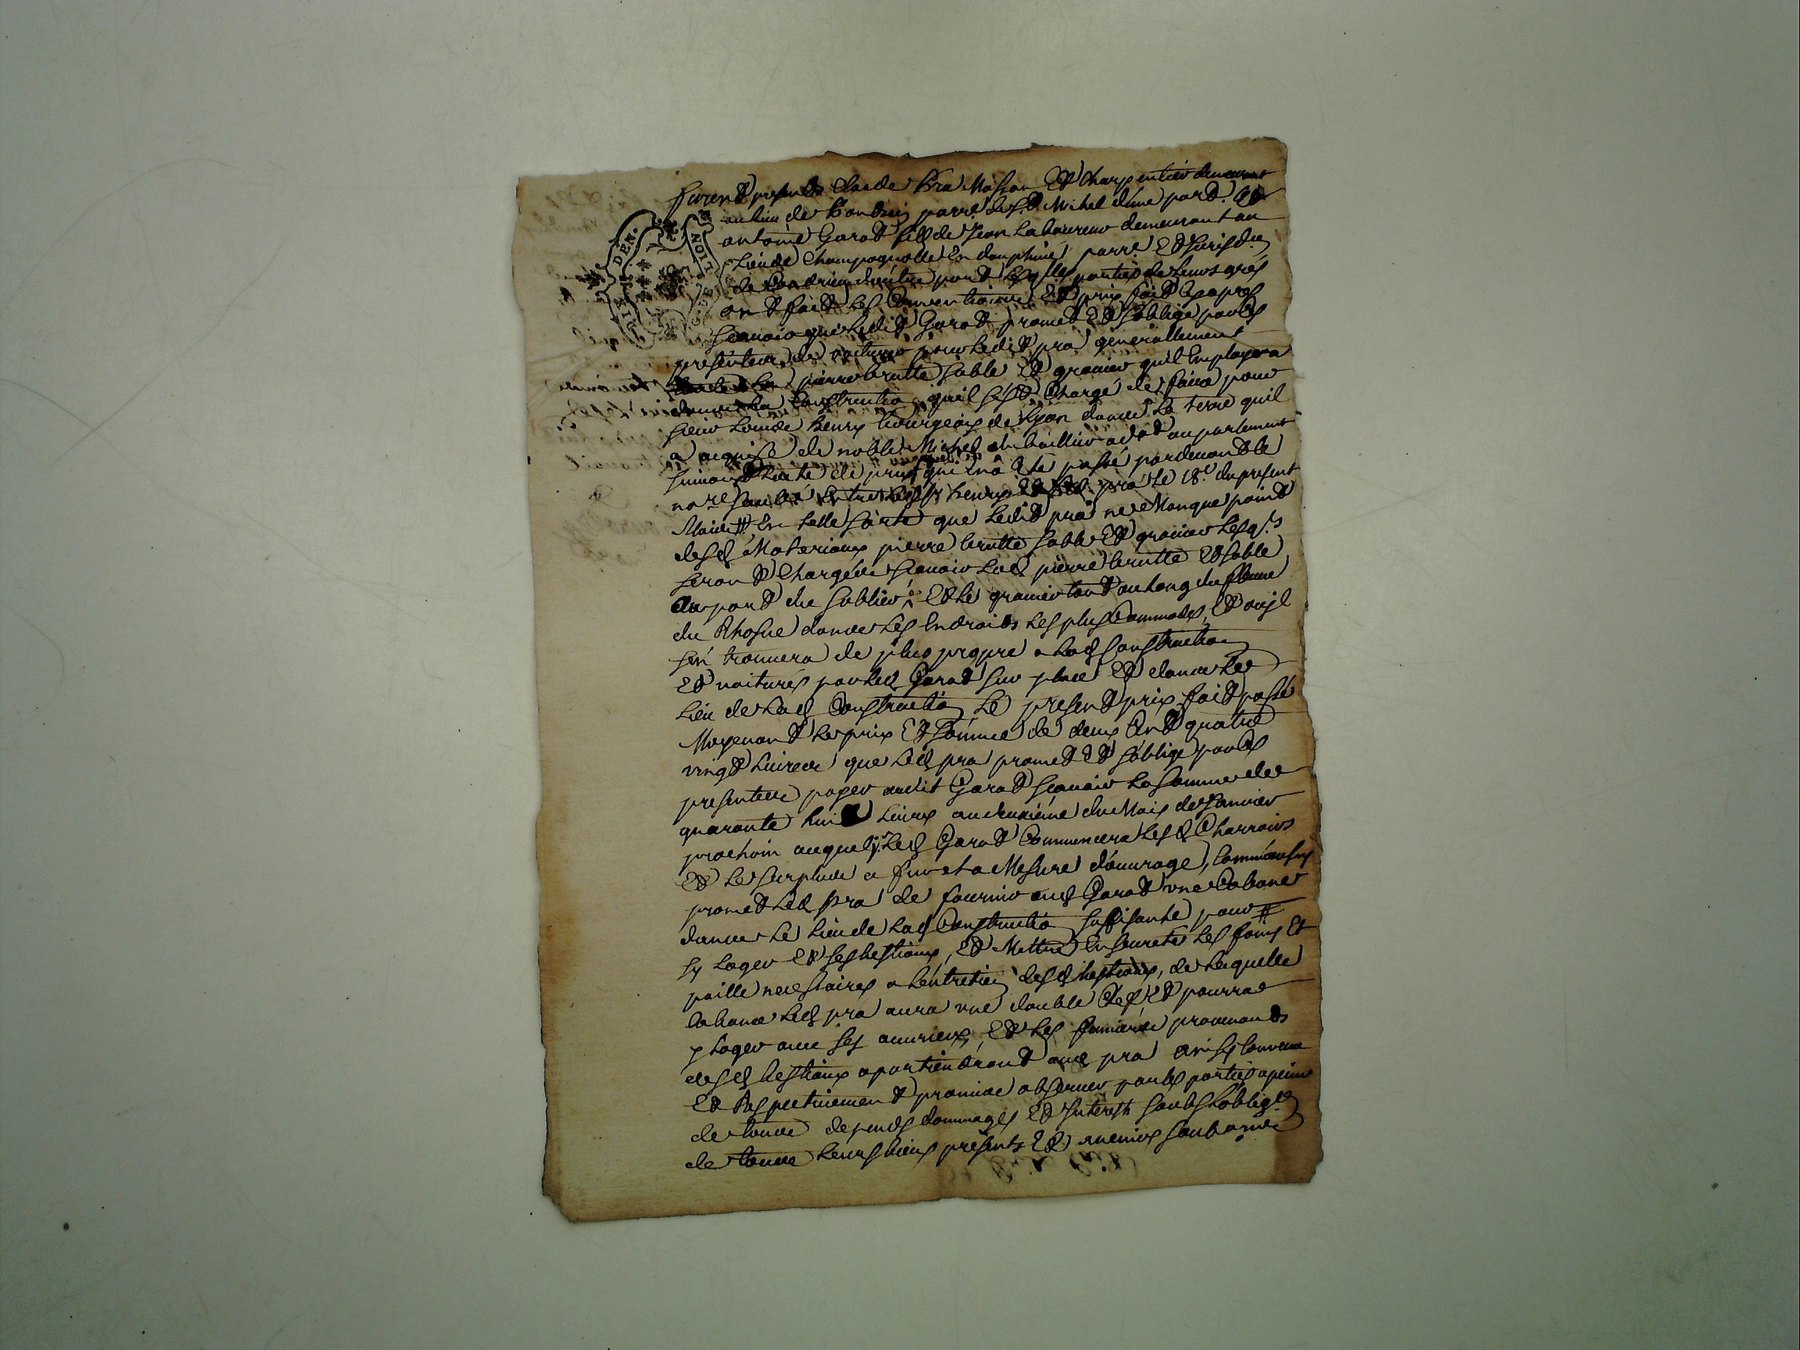 Furent présents Claude Pra Masson Et Charpentier demeurant
au lieu de parr. de St. Michel d'une part. Et
antoine Garat fils de Jean Laboureur demeurant au
Lieu de Champagnolle En dauphiné parr. Et Jurisdic
de Condrieu d'autre part Lesq.lles parties de leurs grés
ont fait Les Conventions Et prix fait Cy apres
Scavoir que Ledit Garat promet Et s'oblige par Les
presentes de voiturer pour Ledit pra généralement
pierre brutte sable Et gravier qu'il Employera
dans La Construction qu'il s'est Chargé de faire pour
sieur Louis henry bourgeois de Lyon dans La terre qu'il
a acquise de noble Michel avocat au parlement
suivant Lacte de prix fait qui en a Eté passé pardevant Le
no.re Entre Les henry Et pra Le 18.e du present
Mois En telle sorte que Ledit pra ne Manque point
desd Materiaux pierre brutte sable Et gravier Lesq.ls
seront Chargés Scavoir Lad pierre brutte Et sable
au port du sablier, Et Le gravier tout au long du fleuve
du Rhosne dans Les Endroits Les plus Commodes, Et ou il
s'en trouvera de plus propre a Lad Construction
Et voiturés par Led Garat sur place Et dans Le
Lieu de Lad Construction Le present prix fait passé
Moyenant Le prix Et somme de deux Cent quatre
vingt Livres que Led pra promet Et s'oblige par Les
presentes payer audit Garat Scavoir La somme de
quarante huit Livres au deuxiéme du Mois de Janvier
prochain auquel jr. Led Garat Commencera Lesd Charrois
Et Le surplus a fur et a Mesure d'ouvrage, Comme aussy
promet Led Pra de fournir aud Garat une Cabane
dans Le Lieu de Lad Construction suffisante pour
sy Loger Et ses bestiaux, Et Mettre En seureté Les foins Et
paille necessaires a Lentretien desd bestiaux, de Laquelle
Cabane Led pra aura une double Clef Et pourra
y Loger avec ses ouvriers, Et Les fumiers provenants
desd bestiaux apartiendront aud pra Ainsy Convenu
Et Respectivement promis observer par Les parties a peine
de tous depends dommages Et Interests sous Lobligon
de tous Leurs biens présents Et avenirs soubmis